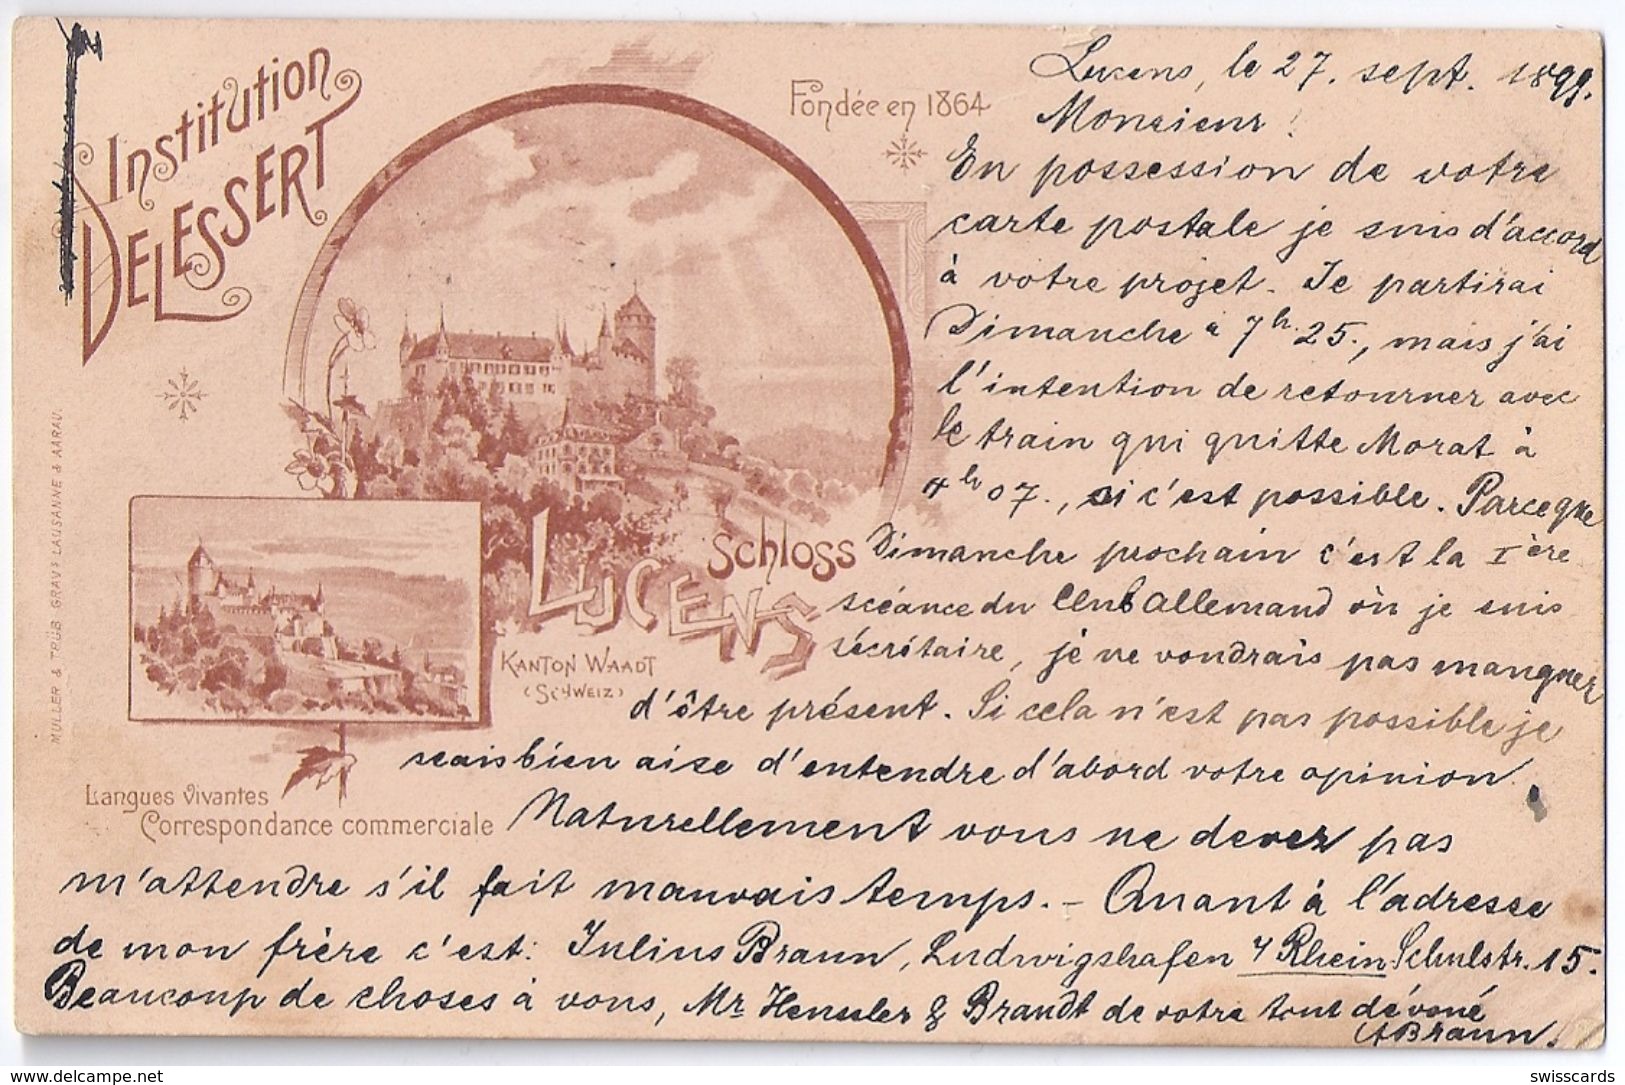 Institution
DELESSERT
Fondée en 1864
Schloss
LUCENS
KANTON WAADT
(SCHWEIZ)
Langues vivantes
Correspondance commerciale
MULLER & TRÜB GRAVS LAUSANNE & AARAU.
Lucens, le 27. sept. 1899.
Monsieur!
En possession de votre
carte postale je suis d'accord
à votre projet. Je partirai
Dimanche à 7h. 25., mais j'ai
l'intention de retourner avec
le train qui quitte Morat à
4h 07., si c'est possible. Parceque
Dimanche prochain c'est la Ière
scéance du Club allemand où je suis
sécrétaire, je ne voudrais pas manquer
d'être présent. Si cela n'est pas possible je
serais bien aise d'entendre d'abord votre opinion.
Naturellement vous ne devez pas
m'attendre s'il fait mauvais temps. — Quant à l'adresse
de mon frère c'est: Julius Braun, Ludwigshafen Rhein Schulstr. 15.
Beaucoup de choses à vous, Mr Hensler & Brandt de votre tout dévoué
ABraun.
swisscards